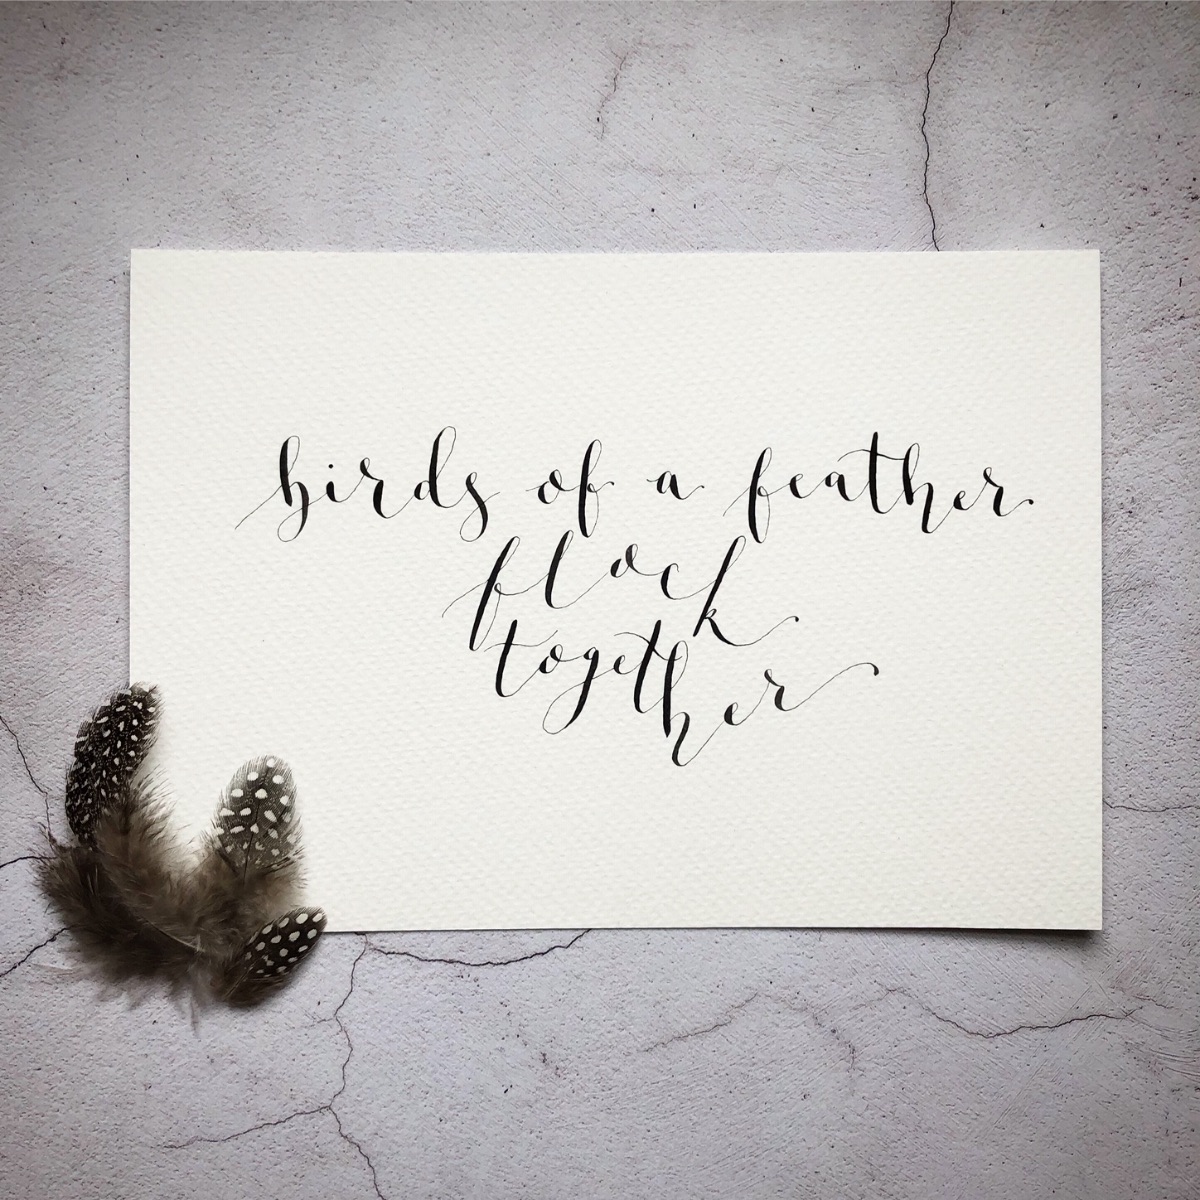 birds of a feather
flock
together